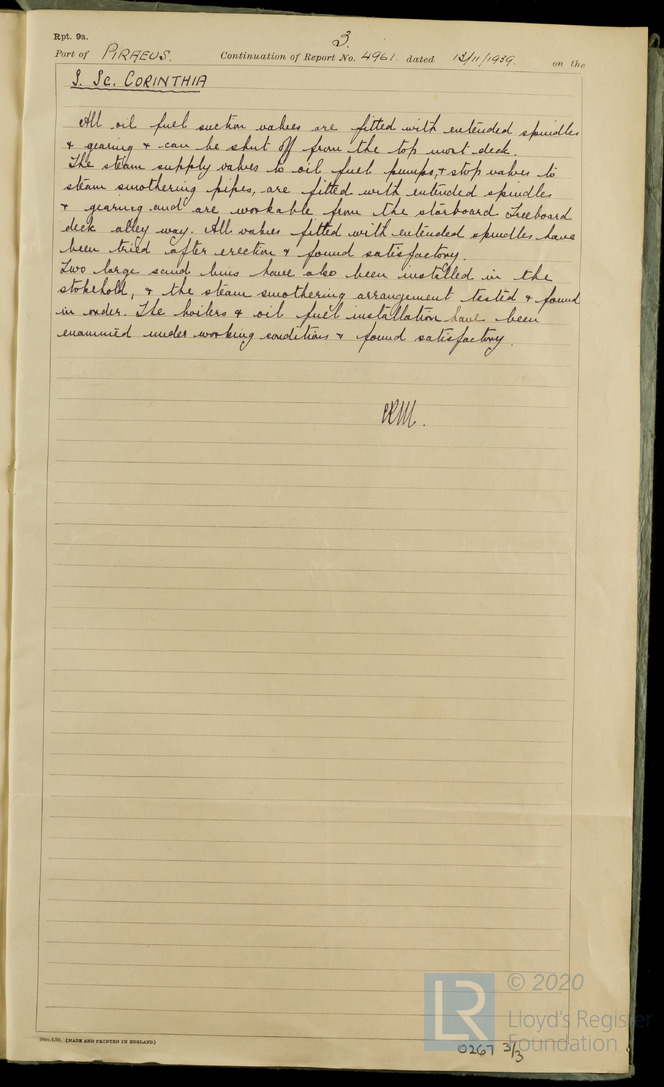 Rpt. 9a.
3.
Port of PIRAEUS. Continuation of Report No. 4961. dated 13/11/1939. on the
S. Sc. CORINTHIA
All oil fuel suction valves are fitted with extended spindles
& gearing & can be shut off from the top most deck.
The steam supply valves to oil fuel pumps, & stop valves to
steam smothering pipes, are fitted with extended spindles
& gearing and are workable from the starboard Freeboard
deck alley way. All valves fitted with extended spindles have
been tried after erection & found satisfactory.
Two large sand bins have also been installed in the
stokehold, & the steam smothering arrangement tested & found
in order. The boilers & oil fuel installation have been
examined under working conditions & found satisfactory.
(MADE AND PRINTED IN ENGLAND)
LR
© 2020
Lloyd's Register
Foundation
0267 3/3